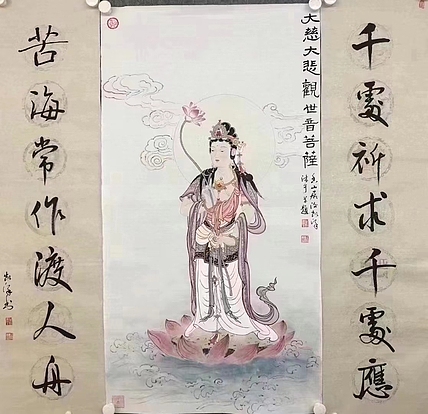 千處祈求千處應
大慈大悲觀世音菩薩
苦海常作渡人舟